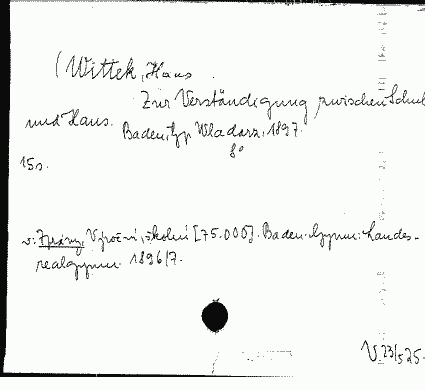 (Wittek, Hans
Zur Verständigung zwischen Schule
und Haus. Baden, Typ. Wladarz, 1897.
8°
15 s.
v: Zprávy, Výroční, školní [75.000]. Baden. Gymn: Landes-
realgymn. 1896/7.
V 23/525.